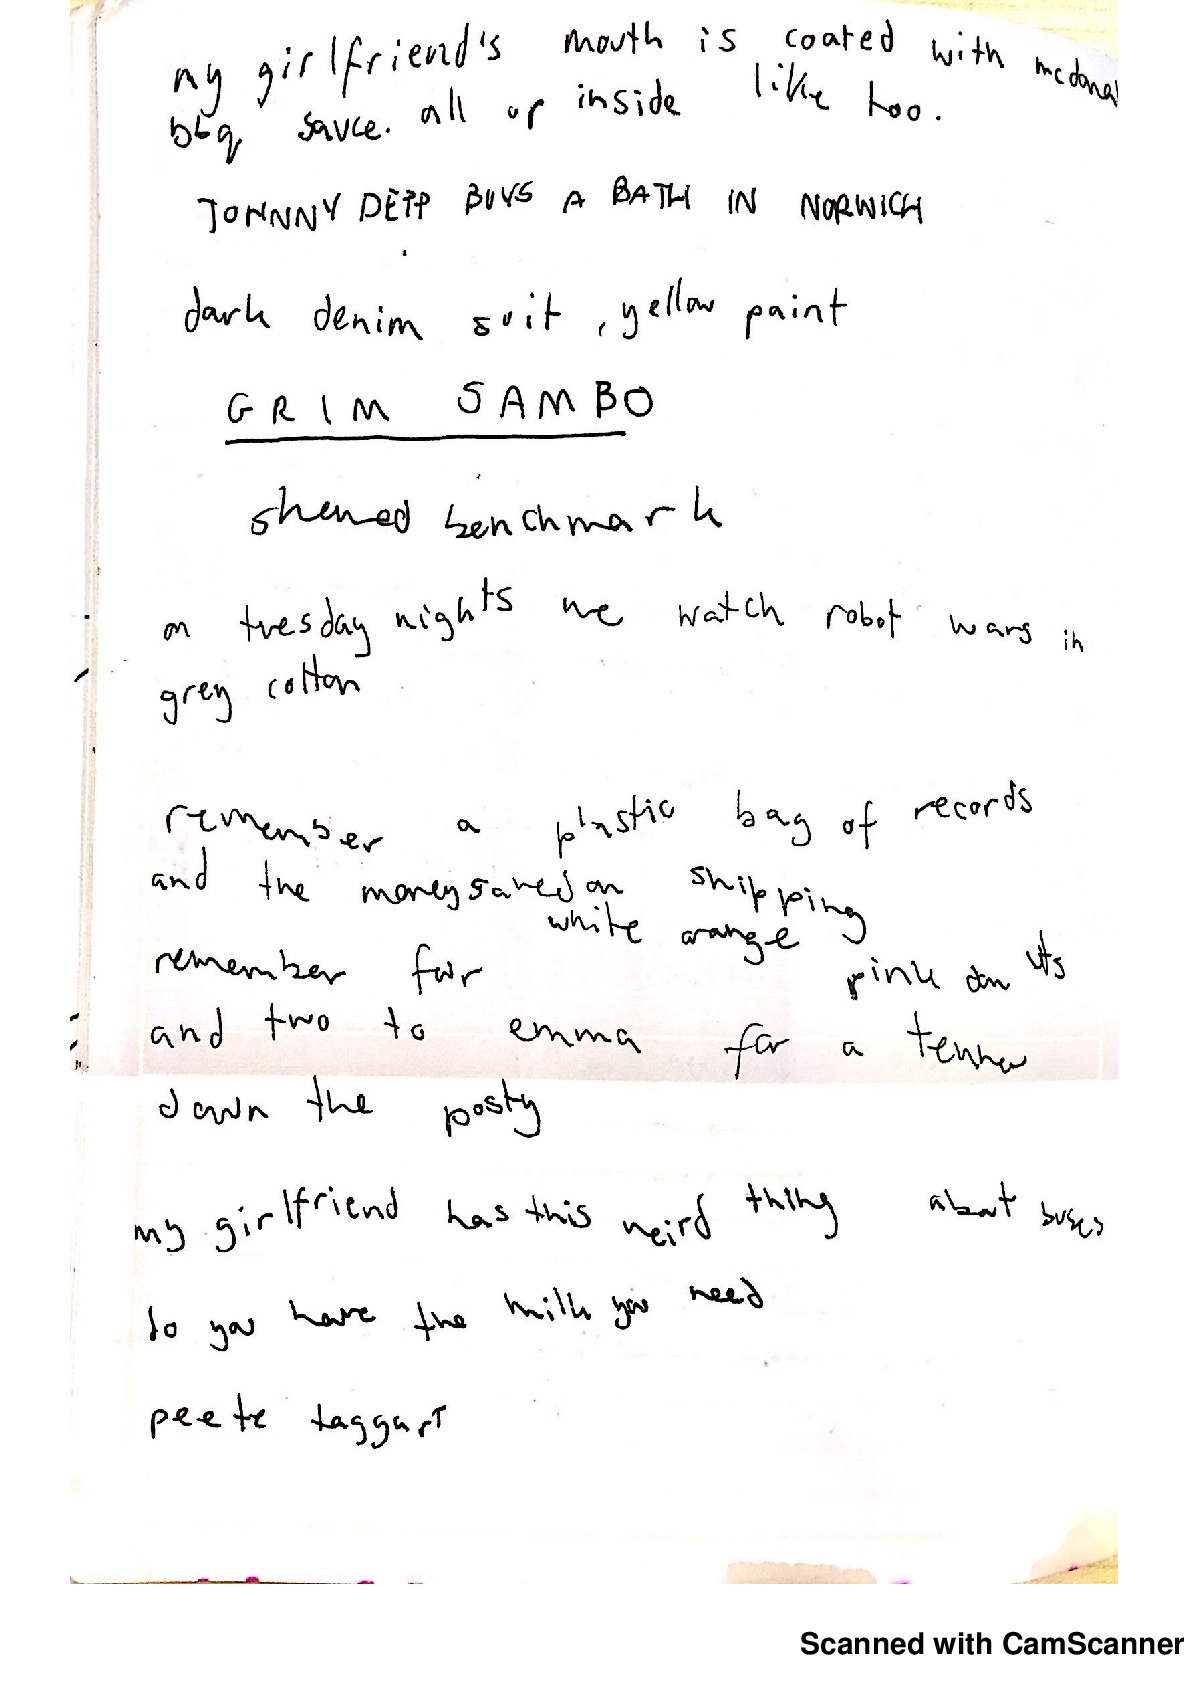 my girlfriend's mouth is coated with mcdonal
bbq sauce. all up inside like too.
JOHNNY DEPP BUYS A BATH IN NORWICH
dark denim suit, yellow paint
GRIM SAMBO
skewed benchmark
on tuesday nights we watch robot wars in
grey cotton
remember a plastic bag of records
and the money saved on shipping
white orange
remember for pink on
and two to emma for a tenner
down the posty
my girlfriend has this weird thing about buses
do you have the milk you need
peete taggart
Scanned with CamScanner